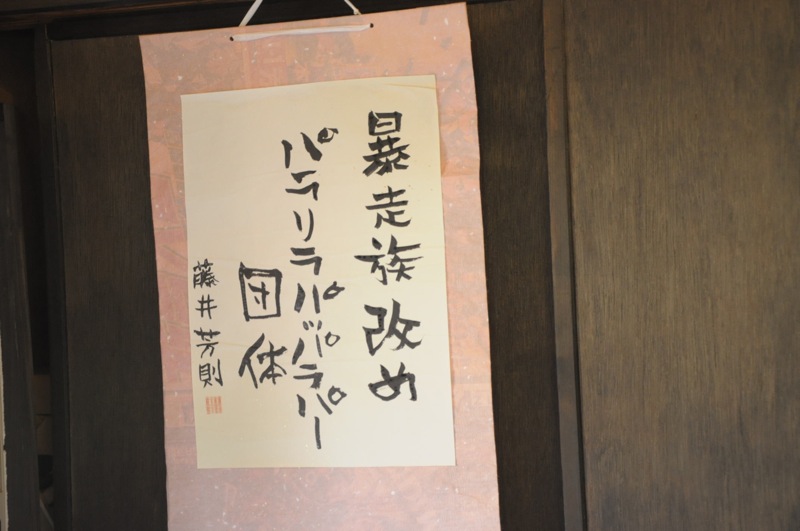 暴走族改め
パラリラパッパラパー
団体
藤井芳則